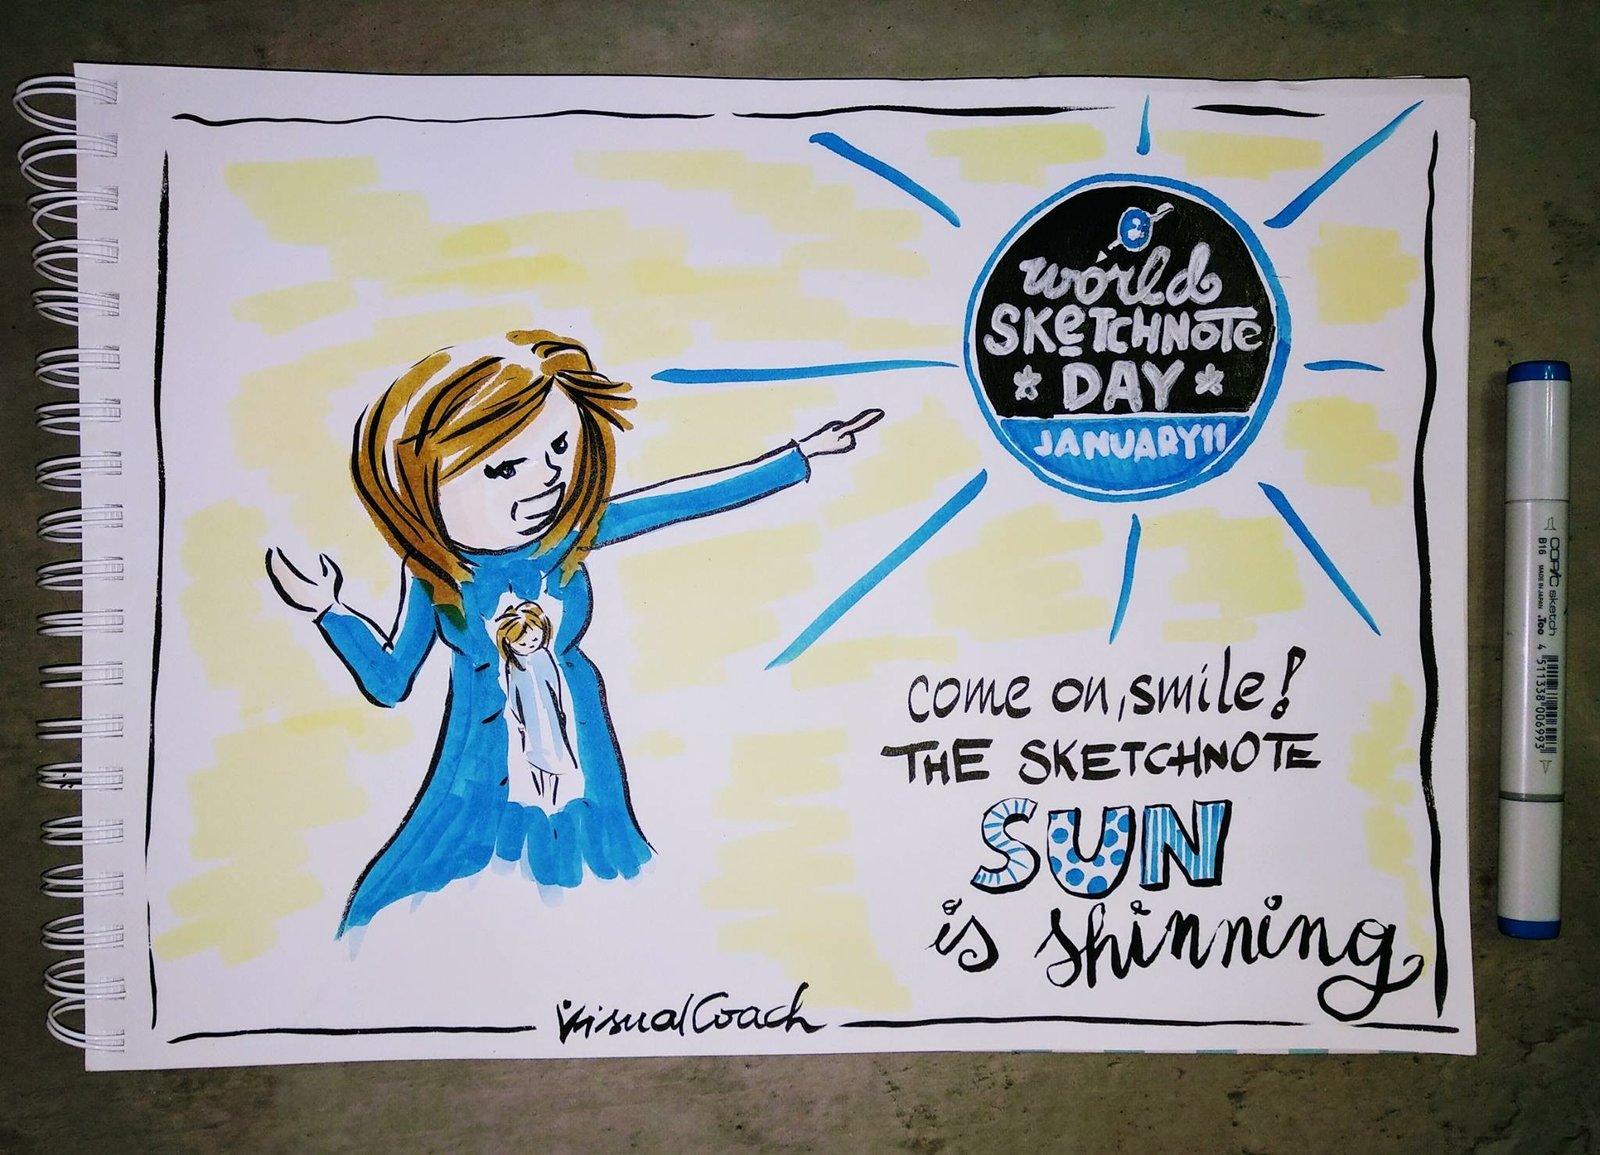 world
SKETCHNOTE
DAY
JANUARY 11
come on, smile!
THE SKETCHNOTE
SUN
is shinning
VisualCoach
COPIC sketch
B16 MADE IN JAPAN Too 4 511338 006993